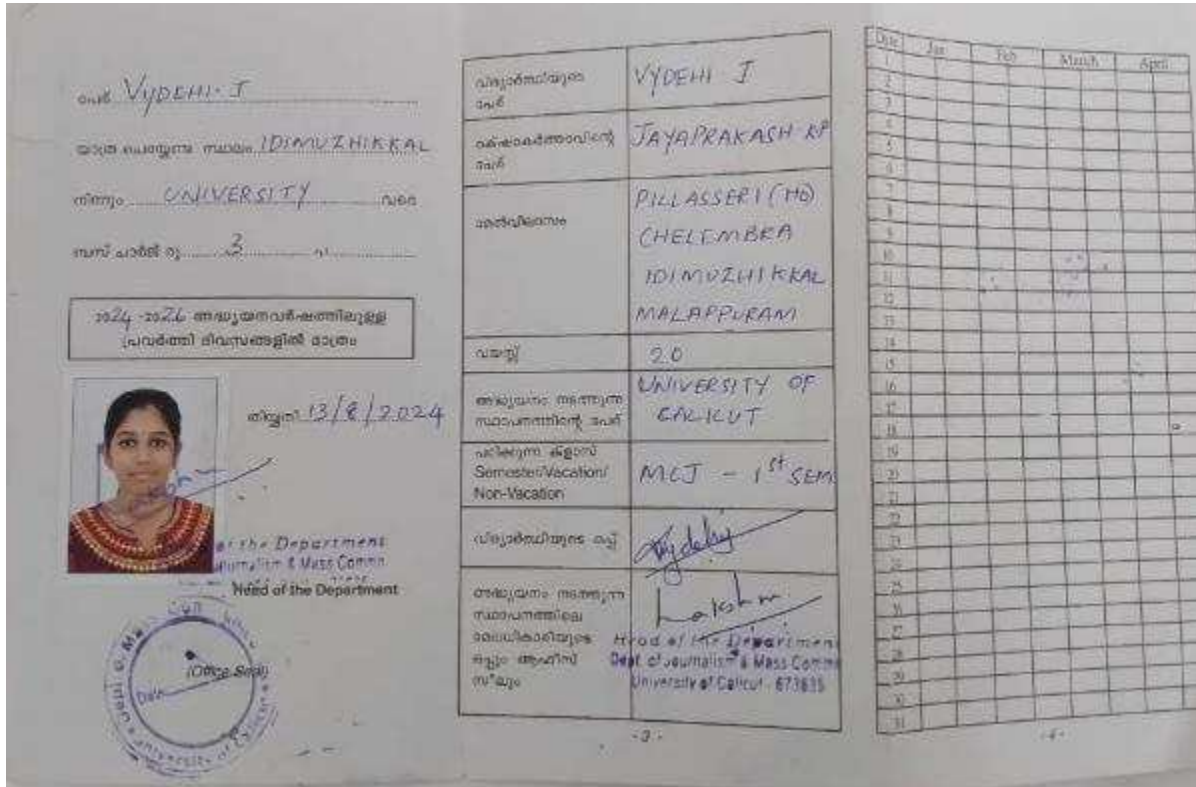 പേര് VYDEHI. J
യാത്ര ചെയ്യുന്ന സ്ഥലം IDIMUZHIKKAL
നിന്നും UNIVERSITY വരെ
ബസ് ചാർജ് രൂ 3
2024 - 2026 അദ്ധ്യയനവർഷത്തിലുള്ള
പ്രവർത്തി ദിവസങ്ങളിൽ മാത്രം
തിയ്യതി 13/8/2024
of the Department
Journalism & Mass Comm
Head of the Department
(Office Seal)
Date
വിദ്യാർത്ഥിയുടെ
പേര്
VYDEHI J
രക്ഷാകർത്താവിന്റെ
പേര്
JAYAPRAKASH KP
മേൽവിലാസം
PILLASSERI (HO)
CHELEMBRA
IDIMUZHIKKAL
MALAPPURAM
വയസ്സ്
20
അദ്ധ്യയനം നടത്തുന്ന
സ്ഥാപനത്തിന്റെ പേര്
UNIVERSITY OF
CALICUT
പഠിക്കുന്ന ക്ളാസ്
Semester/Vacation/
Non-Vacation
MCJ - 1st SEM
വിദ്യാർത്ഥിയുടെ ഒപ്പ്
Vydehi
അദ്ധ്യയനം നടത്തുന്ന
സ്ഥാപനത്തിലെ
മേധാവികാരിയുടെ
ഒപ്പും ആഫീസ്
സീലും
Lakshm
Head of the Department
Dept. of Journalism & Mass Comm
University of Calicut - 673635
- 3 -
Date Jan Feb March April
1
2
3
4
5
6
7
8
9
10
11
12
13
14
15
16
17
18
19
20
21
22
23
24
25
26
27
28
29
30
31
- 4 -